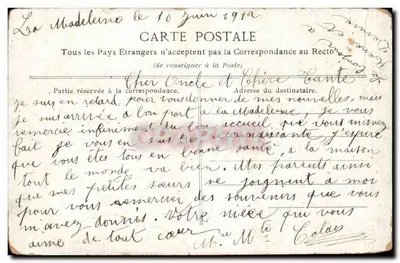 La Madeleine le 10 Juin 1912
CARTE POSTALE
Tous les Pays Etrangers n'acceptent pas la Correspondance au Recto
(Se renseigner à la Poste)
Cher Oncle et Chère Tante
Partie réservée à la correspondance. Adresse du destinataire.
je suis en retard pour vous donner de mes nouvelles, mais
je suis arrivée à bon port a la Madeleine, je vous
remercies infiniment du bon accueil que vous m'avez
fait je vous en suis reconnaissante, j'espère
que vous êtes tous en bonne santé, a la maison
tout le monde va bien. Mes parents ainsi
que mes petites sœurs se joignent a moi
pour vous remercier des souvenirs que vous
m'avez donnés. Votre nièce qui vous
aime de tout cœur